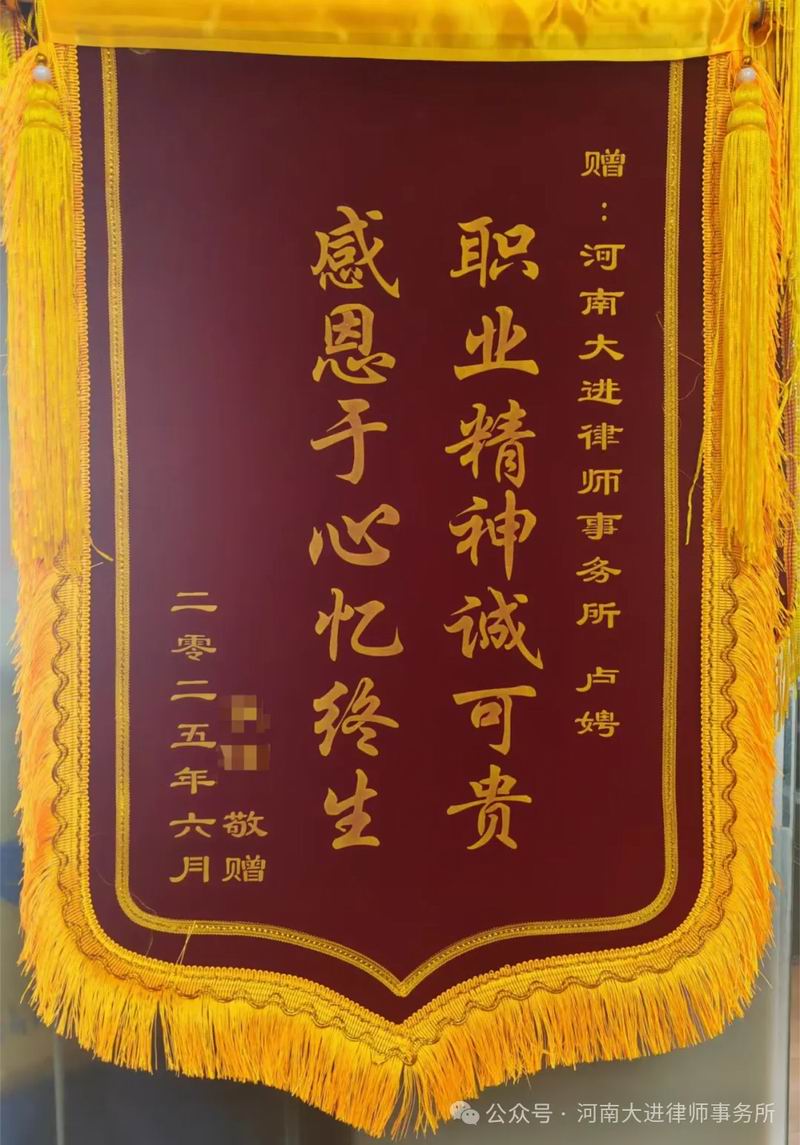 赠：河南大进律师事务所 卢娉
职业精神诚可贵
感恩于心忆终生
敬赠
二零二五年六月
公众号·河南大进律师事务所